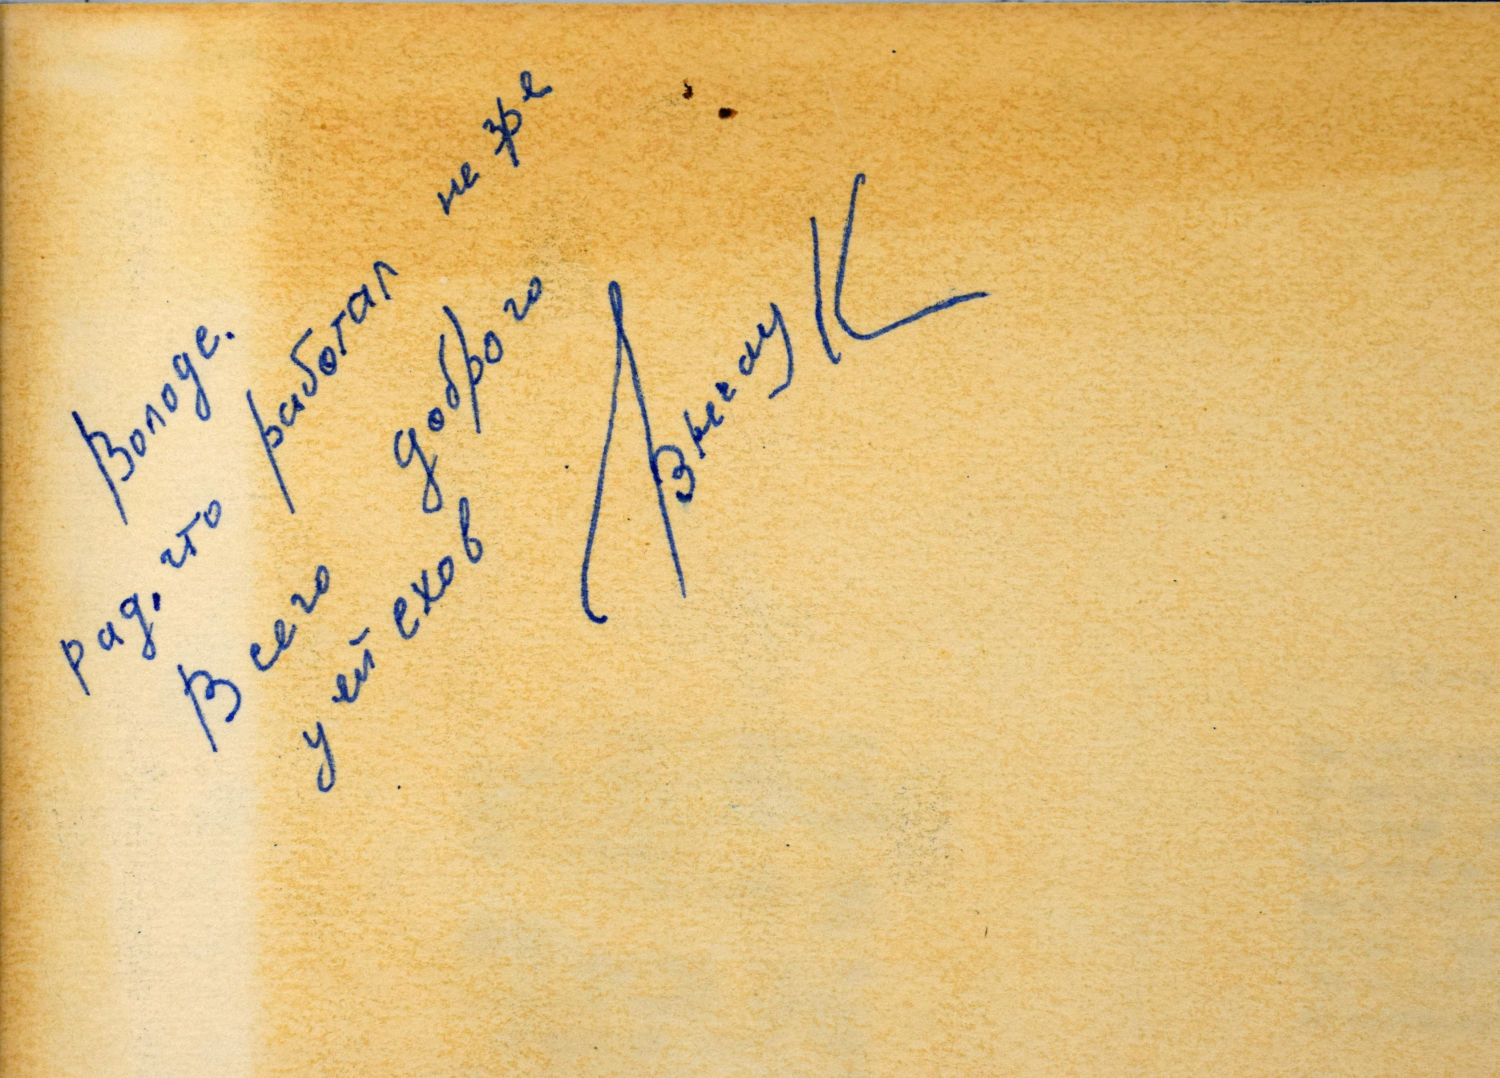 Володе.
рад, что работал не зре
Всего доброго
успехов